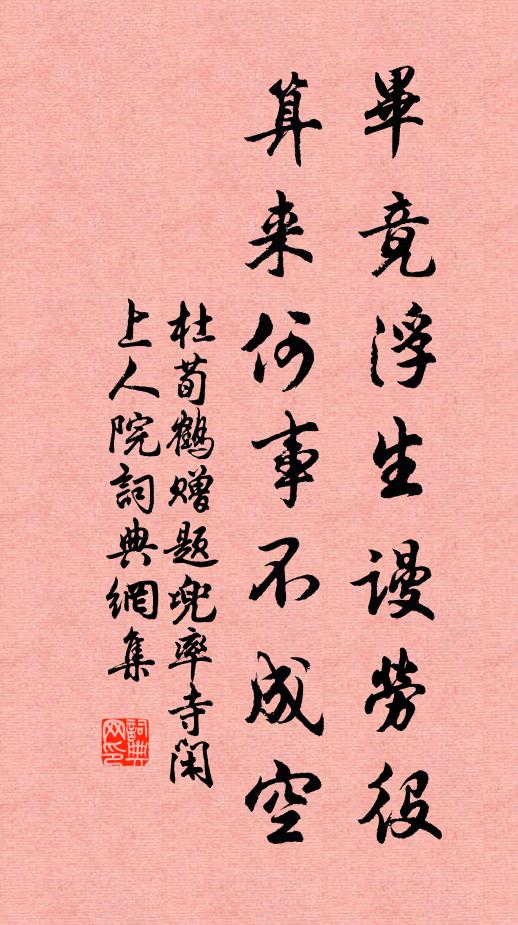 畢竟浮生謾勞役
算来何事不成空
杜荀鶴贈題兜率寺閑
上人院詞典網集
詞典
网印